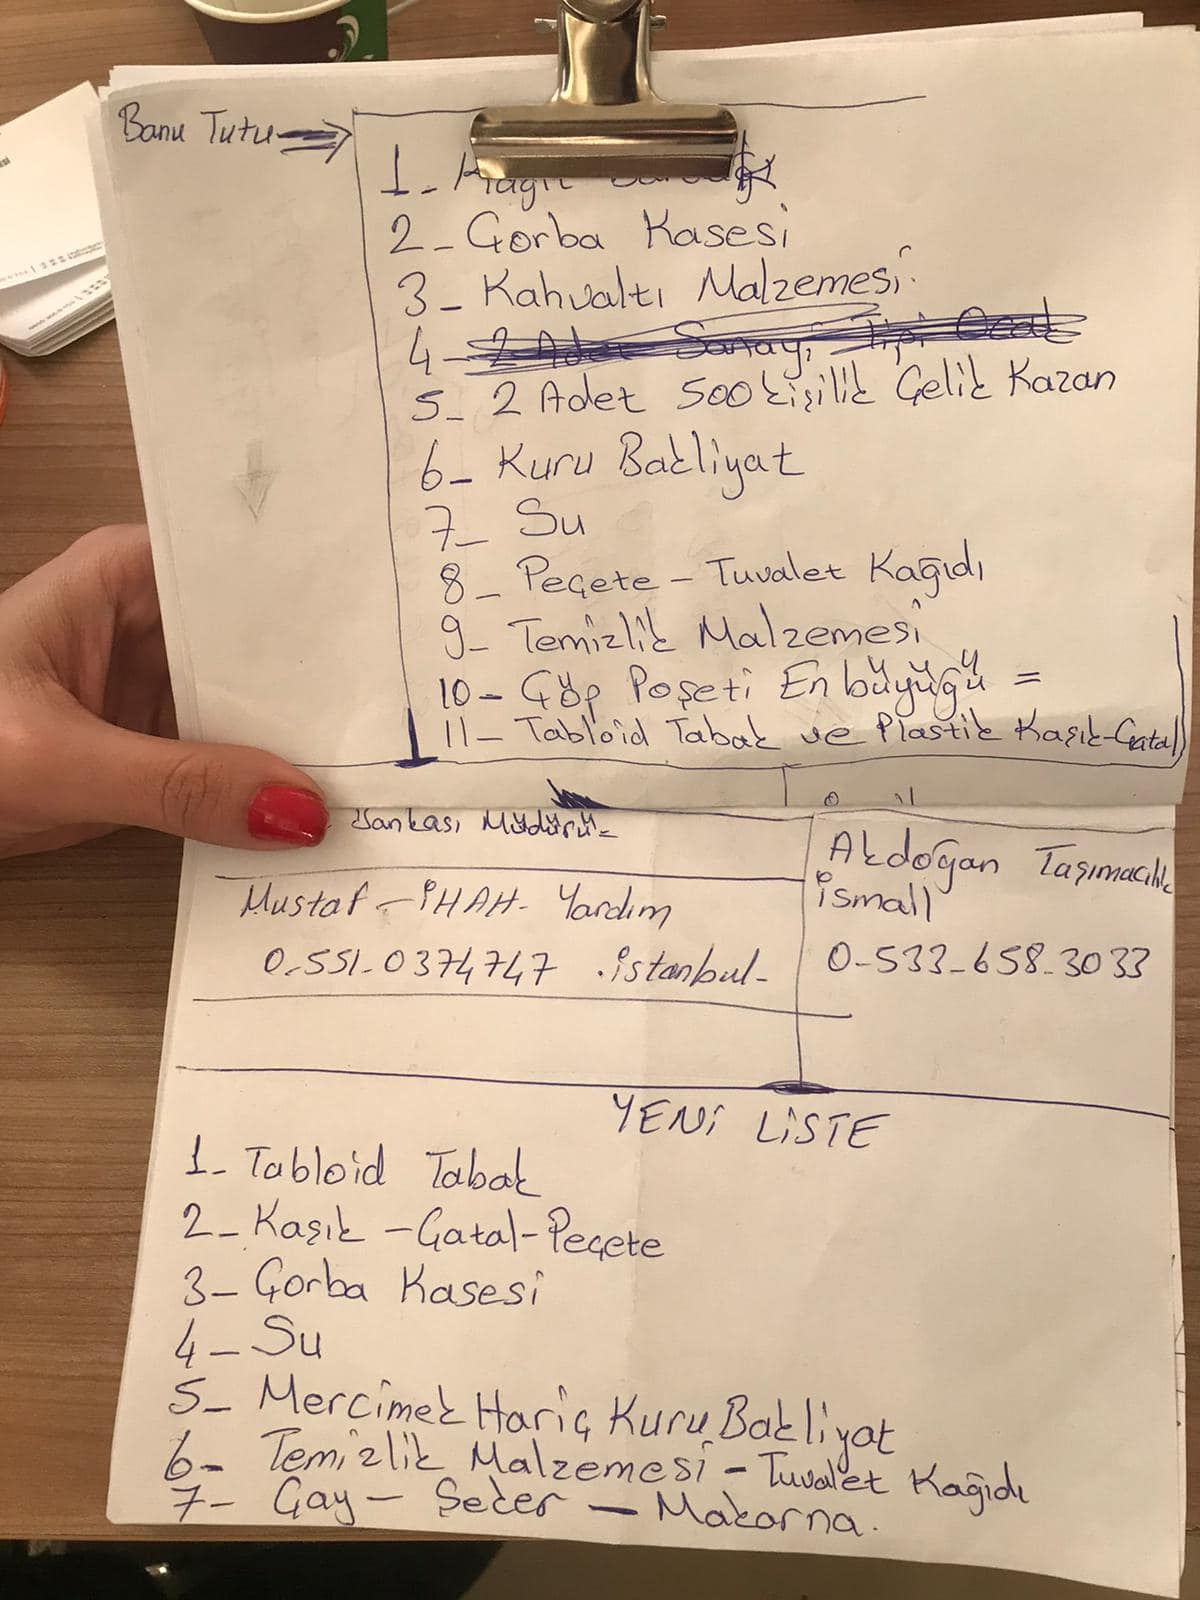 Banu Tutu
1-
2- Çorba Kasesi
3- Kahvaltı Malzemesi
4- 2 Adet Sanayi Tipi Ocak
5- 2 Adet 500 kişilik Çelik Kazan
6- Kuru Bakliyat
7- Su
8- Peçete - Tuvalet Kağıdı
9- Temizlik Malzemesi
10- Çöp Poşeti En büyüğü =
11- Tabloid Tabak ve Plastik Kaşık-Çatal
Bankası Müdürü-
Mustaf - İHAH - Yardım
0-551-0374747 .istanbul-
Akdoğan Taşımacılık
ismail
0-533-658-3033
YENİ LİSTE
1- Tabloid Tabak
2- Kaşık - Çatal - Peçete
3- Çorba Kasesi
4- Su
5- Mercimek Hariç Kuru Bakliyat
6- Temizlik Malzemesi - Tuvalet Kağıdı
7- Çay - Şeker - Makarna.